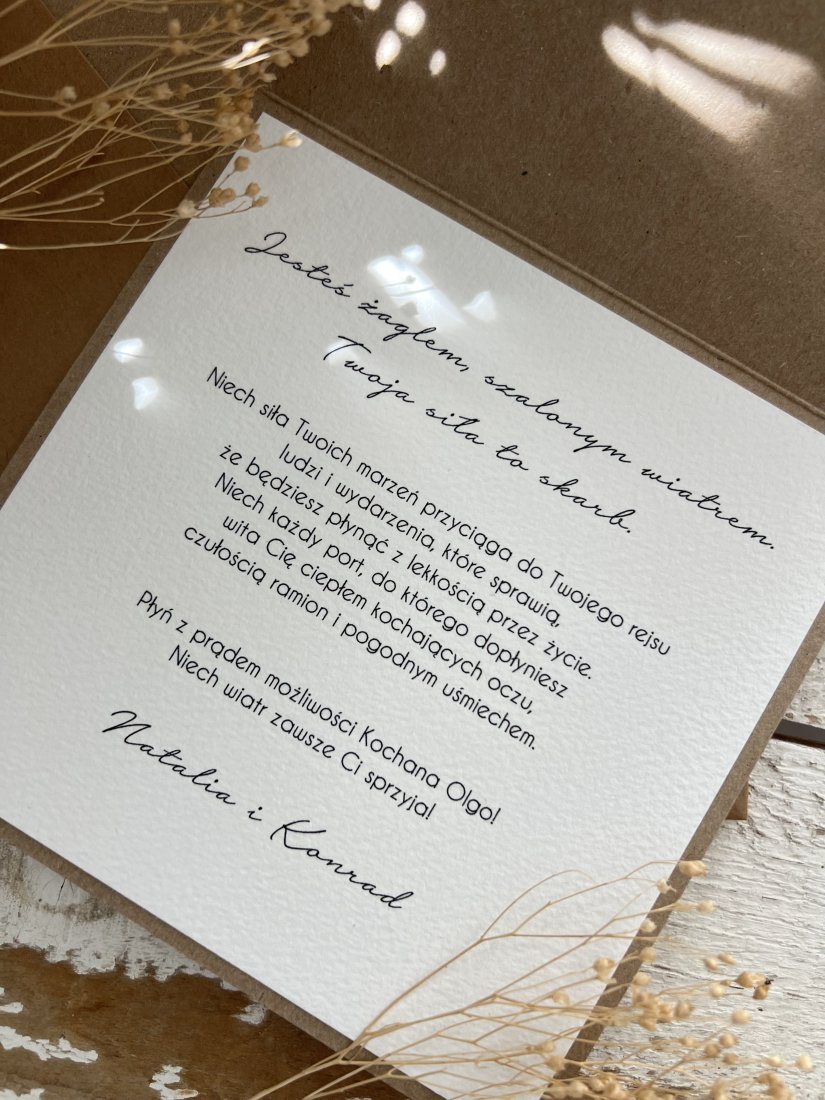 Jesteś żaglem, szalonym wiatrem.
Twoja siła to skarb.
Niech siła Twoich marzeń przyciąga do Twojego rejsu
ludzi i wydarzenia, które sprawią,
że będziesz płynąć z lekkością przez życie.
Niech każdy port, do którego dopłyniesz
wita Cię ciepłem kochających oczu,
czułością ramion i pogodnym uśmiechem.
Płyń z prądem możliwości Kochana Olgo!
Niech wiatr zawsze Ci sprzyja!
Natalia i Konrad